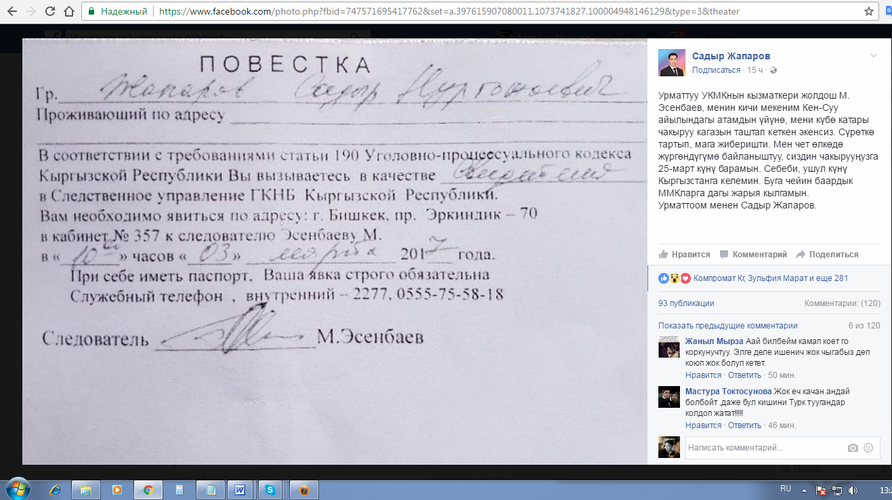 Надежный
https://www.facebook.com/photo.php?fbid=747571695417762&set=a.397615907080011.1073741827.100004948146129&type=3&theater
ПОВЕСТКА
Гр. Жапаров Садыр Нургожоевич
Проживающий по адресу
В соответствии с требованиями статьи 190 Уголовно-процессуального кодекса
Кыргызской Республики Вы вызываетесь в качестве свидетеля
в Следственное управление ГКНБ Кыргызской Республики.
Вам необходимо явиться по адресу: г. Бишкек, пр. Эркиндик – 70
в кабинет № 357 к следователю Эсенбаеву М.
в « 10 00 » часов « 03 » марта 2017 года.
При себе иметь паспорт. Ваша явка строго обязательна
Служебный телефон , внутренний – 2277, 0555-75-58-18
Следователь М.Эсенбаев
Садыр Жапаров
Подписаться · 15 ч ·
Урматтуу УКМКнын кызматкери жолдош М.
Эсенбаев, менин кичи мекеним Кен-Суу
айылындагы атамдын үйүнө, мени күбө катары
чакыруу кагазын таштап кеткен экенсиз. Сүрөткө
тартып, мага жиберишти. Мен чет өлкөдө
жүргөндүгүмө байланыштуу, сиздин чакырууңузга
25-март күнү барамын. Себеби, ушул күнү
Кыргызстанга келемин. Буга чейин баардык
ММКларга дагы жарыя кылгамын.
Урматтоом менен Садыр Жапаров.
Нравится Комментарий Поделиться
Компромат Kg, Зульфия Марат и еще 281
93 публикации Комментарии: (120)
Показать предыдущие комментарии 6 из 120
Жаныл Мырза Аай билбейм камап коет го
коркунучтуу. Элге деле ишенич жок чыгабыз деп
коюп жок болуп кетет.
Нравится · Ответить · 50 мин.
Мастура Токтосунова Жок еч качан андай
болбойт ,даже бул кишини Турк туугандар
колдоп жатат!!!!
Нравится · Ответить · 46 мин.
Написать комментарий...
RU